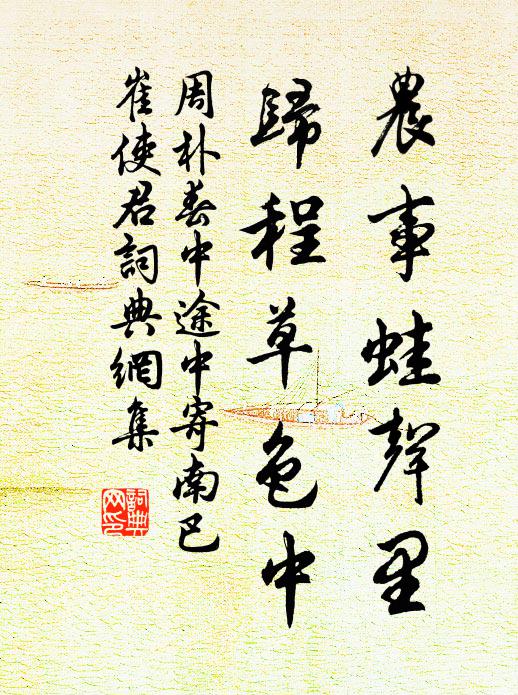 農事蛙聲里
歸程草色中
周朴春中途中寄南巴
崔使君詞典網集
詞典
网印